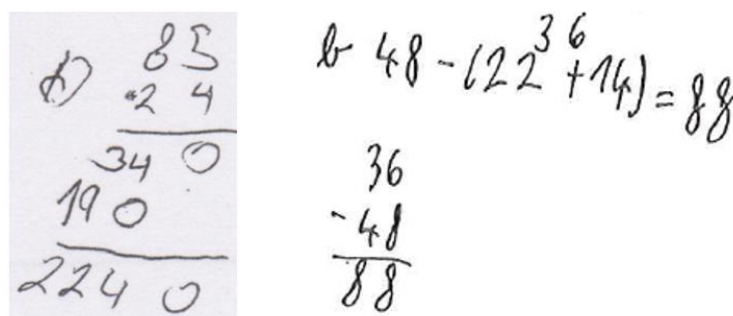 d) 85
·24
340
190
2240
b 48-(22+14)=88
36
36
-48
88